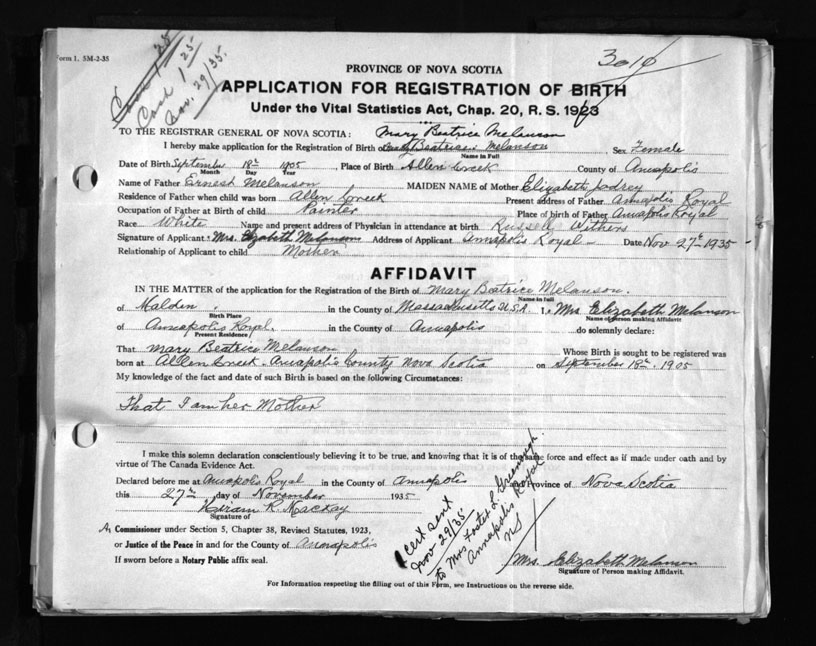 Form 1. 5M-2-35
Cash 1.25
Nov. 29/35.
3010
PROVINCE OF NOVA SCOTIA
APPLICATION FOR REGISTRATION OF BIRTH
Under the Vital Statistics Act, Chap. 20, R. S. 1923
TO THE REGISTRAR GENERAL OF NOVA SCOTIA: Mary Beatrice Melanson
I hereby make application for the Registration of Birth of Beatrice Melanson Sex Female
Name in Full
Date of Birth September 18th 1905, Place of Birth Allen Creek County of Annapolis
Month Day Year
Name of Father Ernest Melanson MAIDEN NAME of Mother Elizabeth Jodrey
Residence of Father when child was born Allen Creek Present address of Father Annapolis Royal
Occupation of Father at Birth of child Painter Place of birth of Father Annapolis Royal
Race White Name and present address of Physician in attendance at birth Russell Withers
Signature of Applicant Mrs. Elizabeth Melanson Address of Applicant Annapolis Royal Date Nov 27th 1935
Relationship of Applicant to child Mother
AFFIDAVIT
IN THE MATTER of the application for the Registration of the Birth of Mary Beatrice Melanson.
Name in Full
of Malden. in the County of Massachusetts U.S.A. I, Mrs Elizabeth Melanson
Birth Place Name of person making Affidavit
of Annapolis Royal. in the County of Annapolis do solemnly declare:
Present Residence
That Mary Beatrice Melanson Whose Birth is sought to be registered was
born at Allen Creek. Annapolis County Nova Scotia on September 18th. 1905
My knowledge of the fact and date of such Birth is based on the following Circumstances:
That I am her Mother
I make this solemn declaration conscientiously believing it to be true, and knowing that it is of the same force and effect as if made under oath and by
virtue of The Canada Evidence Act.
Declared before me at Annapolis Royal in the County of Annapolis and Province of Nova Scotia
this 27th day of November 1935
Hiram R. Mackay
Signature of
A Commissioner under Section 5, Chapter 38, Revised Statutes, 1923,
or Justice of the Peace in and for the County of Annapolis
If sworn before a Notary Public affix seal.
1 cert sent
Nov 29/35
to Mrs Foster L. Greenough.
Annapolis Royal
NS
Mrs. Elizabeth Melanson
Signature of Person making Affidavit.
For Information respecting the filling out of this Form, see Instructions on the reverse side.